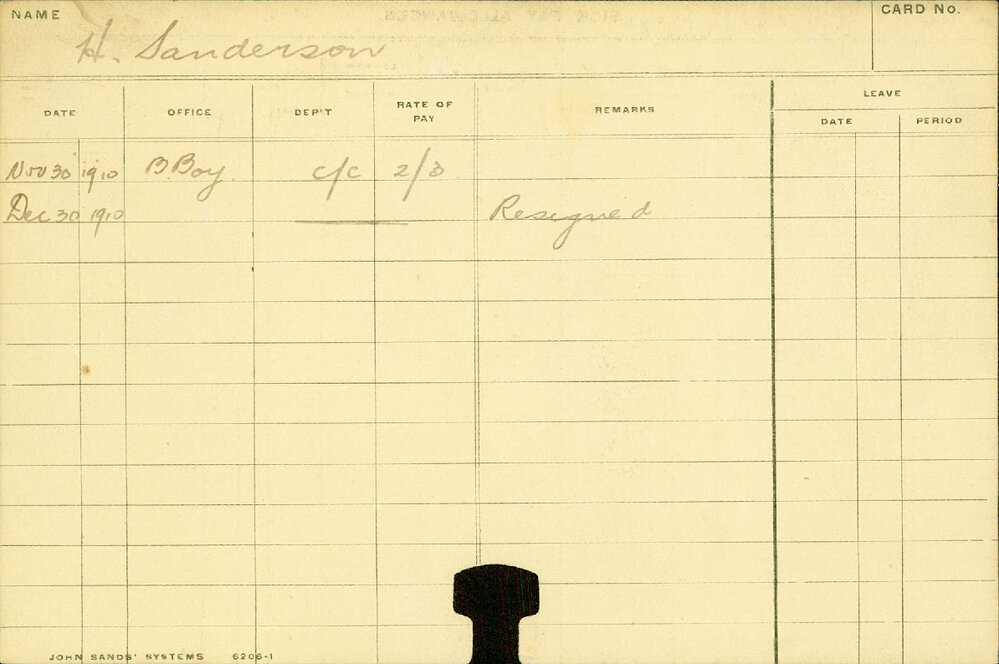 NAME
H. Sanderson
CARD No.
DATE OFFICE DEP'T RATE OF PAY REMARKS LEAVE
DATE PERIOD
Nov 30 1910 B.Boy. c/c 2/3
Dec 30 1910 Resigned
JOHN SANDS' SYSTEMS 6206-1